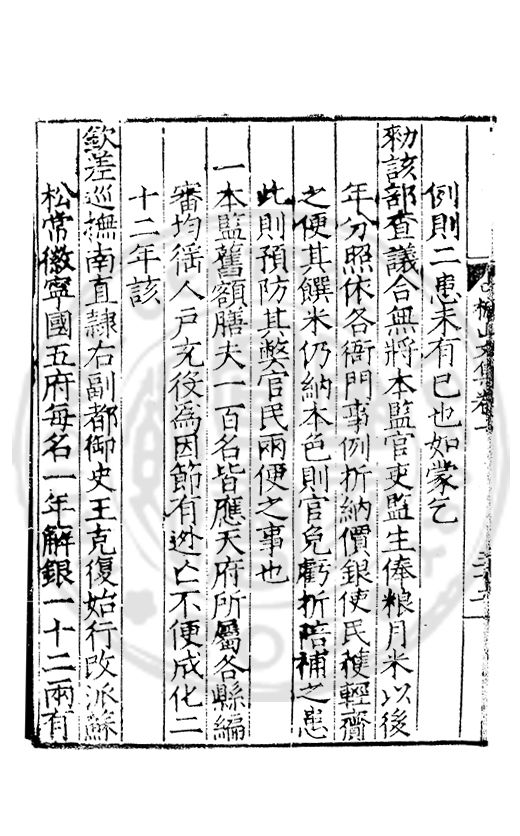 例則二患未有已也如蒙乞
勑該部查議合無將本監官吏監生俸粮月米以後
年分照依各衙門事例折納價銀使民獲輕齎
之便其饌米仍納本色則官免虧折陪補之患
此則預防其獘官民兩便之事也
一本監舊額膳夫一百名皆應天府所屬各縣編
審均徭人戶充役為因節有逃亡不便成化二
十二年該
欽差巡撫南直隷右副都御史王克復始行改派蘇
松常徽寧國五府每名一年解銀一十二兩有
山文集卷